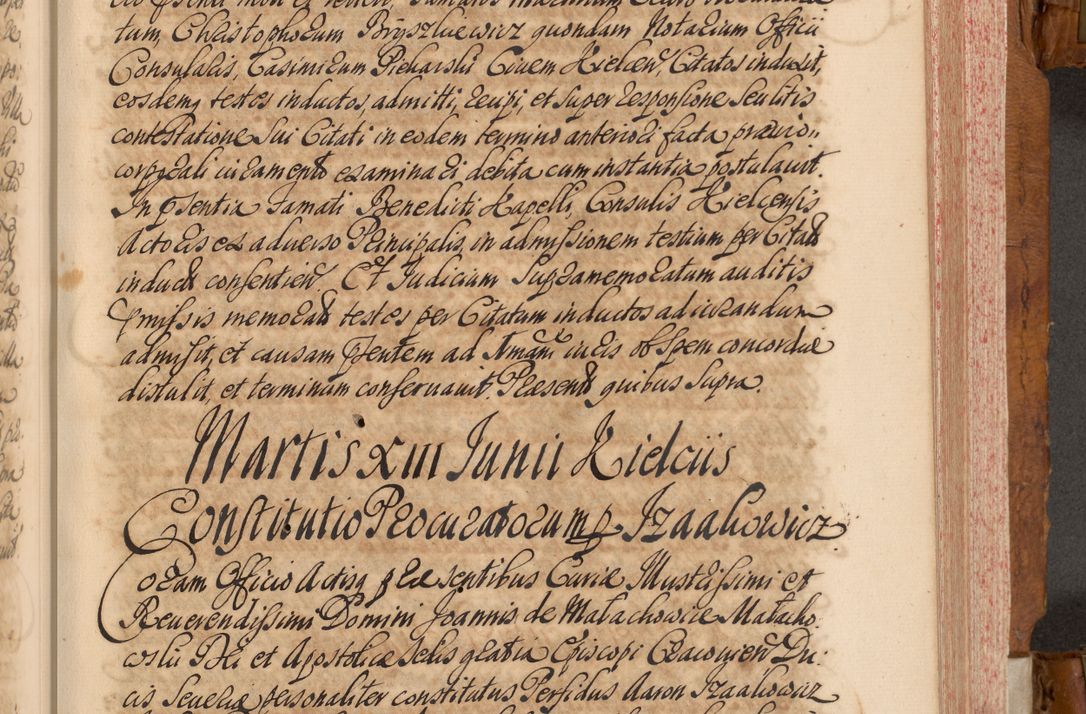 tum, Christophorum Bryszkiewicz quondam Notarium Officii
Consularis, Casimirum Piekarski Civem Kielcen̄, Citatos induxit,
eosdemq testes inductos, admitti, recipi, et super responsione seu litis
contestatione sui Citati in eodem termino anteriori facta prævio
corporali iuramento examinari debita cum instantia postulavit.
In pñtia Famati Benedicti Kapelli, Consulis Kielcensis
Actoris ex adverso Principalis, in admissionem testium per Citat
induct consentien̄. Et Judicium Supramemoratum auditis
præmissis memorat testes per Citatum inductos ad iurandum
admisit, et causam pñtem ad iuris ob spem concordiæ
distulit, et terminum conservavit. Præsent quibus supra.
Martis XIII Junii Kielciis
Constitutio Procuratorum p Izaakowicz
Coram Officio Actisq præsentibus Curiæ Illustrissimi et
Reverendissimi Domini Joannis de Małachowice Małacho
wski Dei et Apostolicæ Sedis gratia Episcopi Cracovien̄ Du:
cis Severiæ personaliter constitutus Perfidus Aaron Izaakowicz